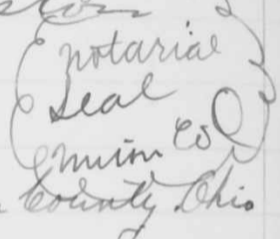 notarial
seal
Union Co
County, Ohio